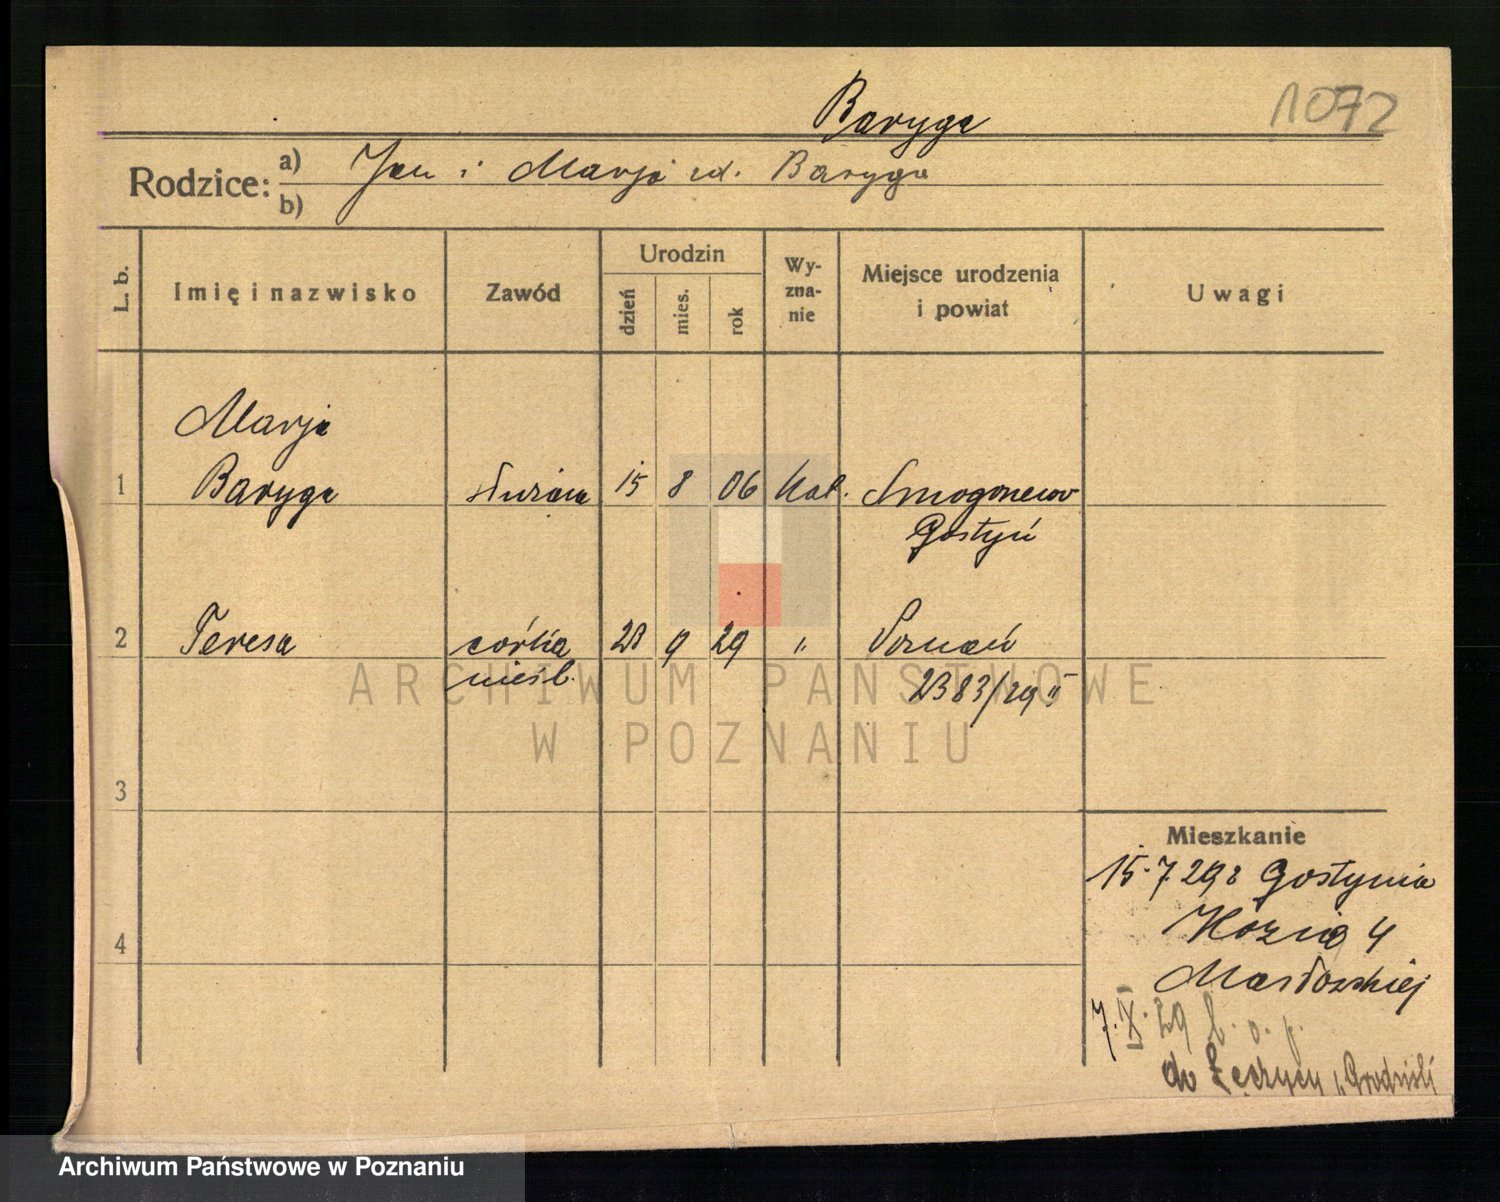 Baryga
1072
Rodzice:
a) Jan i Marja zd. Baryga
b)
L. b.
Imię i nazwisko
Zawód
Urodzin
dzień
mies.
rok
Wy-
zna-
nie
Miejsce urodzenia
i powiat
Uwagi
Marja
1 Baryga służąca 15 8 06 kat. Smogorzewo
Gostyń
2 Teresa córka 28 9 29 " Poznań
nieśl. 2383/29 II
3
4
Mieszkanie
15.7.29 z Gostynia
Kozia 4
7.X.29 b. o. p.
do Łęczycy
ARCHIWUM PAŃSTWOWE
W POZNANIU
Archiwum Państwowe w Poznaniu